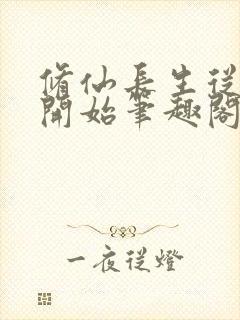 脩仙長生從
開始筆趣閣
一夜從燈